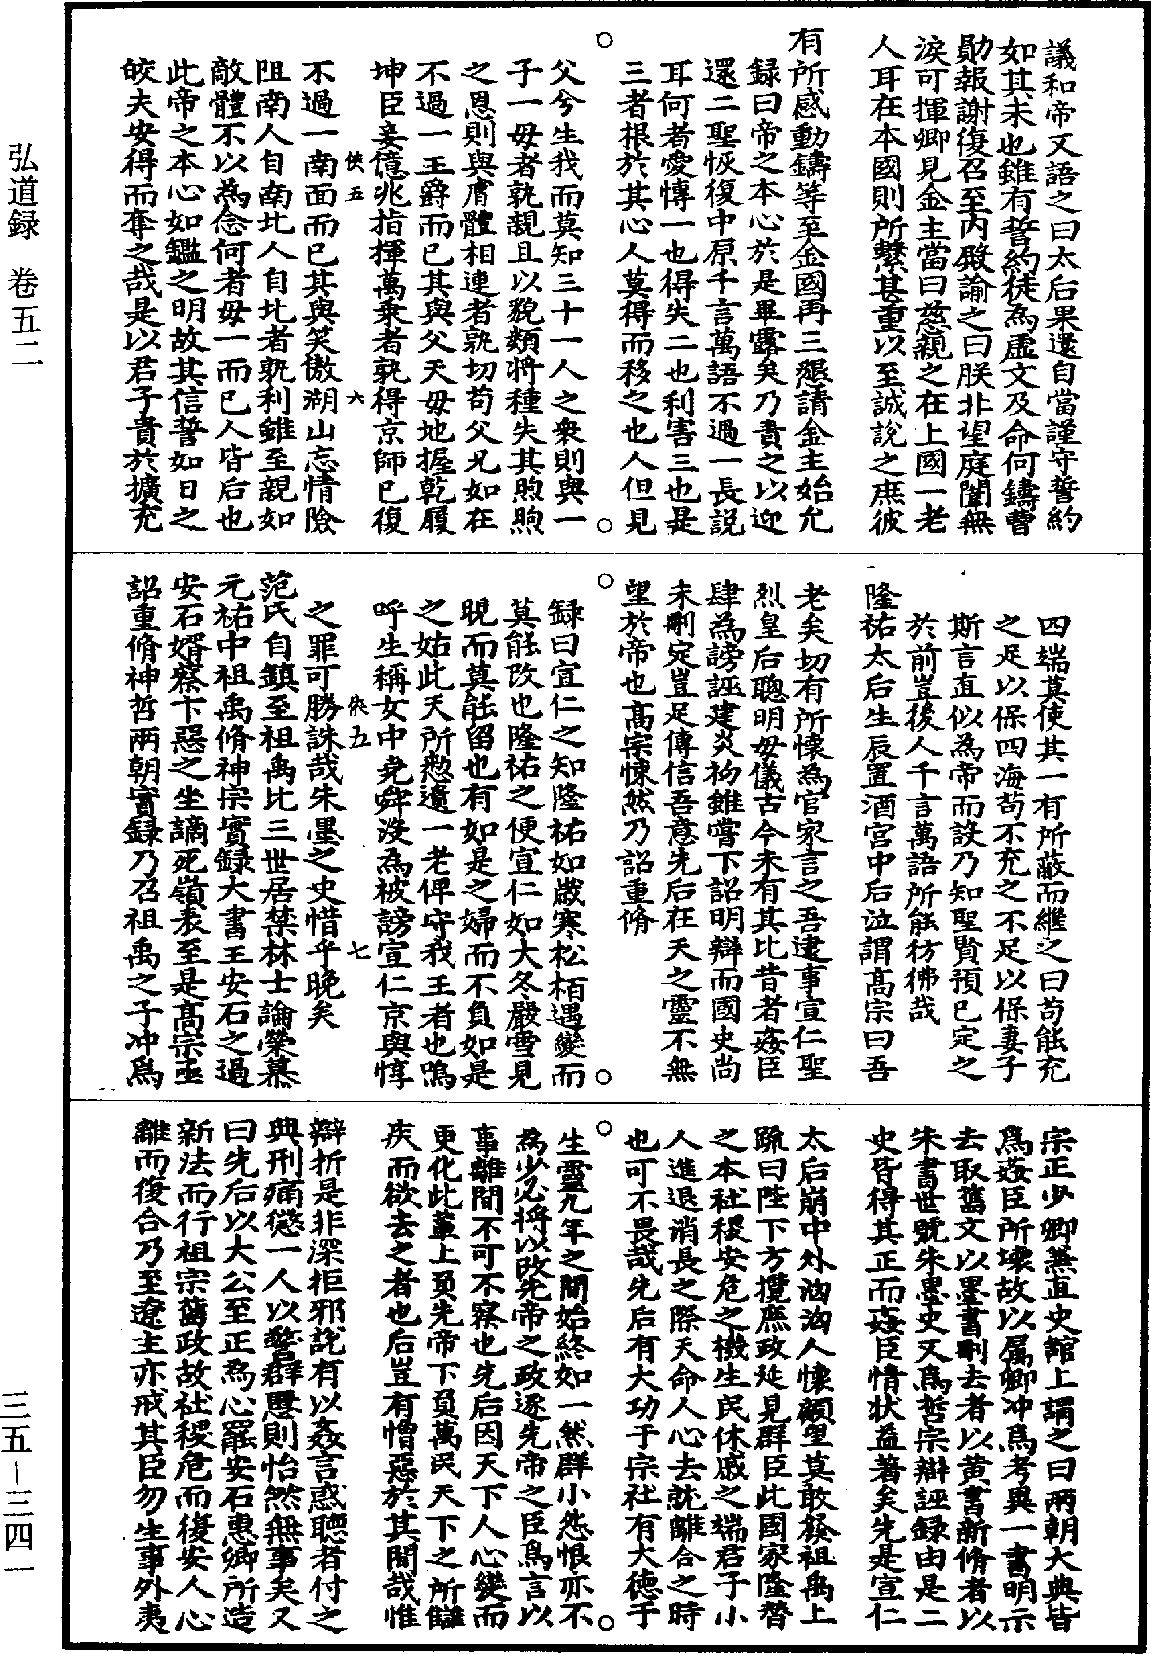 議和帝又語之曰太后果還自當謹守誓約
如其未也雖有誓約徒為虛文及命何鑄曹
勛報謝復召至内殿諭之曰朕北望庭闈無
淚可揮卿見金主當曰慈親之在上國一老
人耳在本國則所繫甚重以至誠說之庶彼
有所感動鑄等至金國再三懇請金主始允
録曰帝之本心於是畢露矣乃責之以迎
還二聖恢復中原千言萬語不過一長説
耳何者愛慱一也得失二也利害三也是
三者根於其心人莫得而移之也人但見
父兮生我而莫知三十一人之衆則與一
子一毋者孰親且以貌類將種失其煦煦
之恩則與膚體相連者孰切苟父兄如在
不過一王爵而已其與父天毋地握乾履
坤臣妾億兆指揮萬乘者孰得京師已復
俠五 六
不過一南面而已其與笑傲湖山忘情險
阻南人自南北人自北者孰利雖至親如
敵體不以為念何者毋一而已人皆后也
此帝之本心如鑑之明故其信誓如日之
皎夫安得而奪之哉是以君子貴於擴充
四端莫使其一有所蔽而繼之曰苟能充
之足以保四海苟不充之不足以保妻子
斯言直似為帝而設乃知聖賢預已定之
於前豈後人千言萬語所能彷彿哉
隆祐太后生辰置酒宫中后泣謂髙宗曰吾
老矣切有所懷為官家言之吾逮事宣仁聖
烈皇后聰明毋儀古今未有其比昔者姦臣
肆為謗誣建炎初雖嘗下詔明辯而國史尚
未刪定豈足傳信吾意先后在天之靈不無
望於帝也髙宗悚然乃詔重脩
録曰宣仁之知隆祐如嚴寒松栢遇變而
莫能改也隆祐之便宣仁如大冬嚴雪見
晛而莫能留也有如是之婦而不負如是
之姑此天所憖遺一老俾守我王者也嗚
呼生稱女中堯舜沒為被謗宣仁京與惇
俠五 七
之罪可勝誅哉朱墨之史惜乎晚矣
范氏自鎮至祖禹比三世居禁林士論榮慕
元祐中祖禹脩神宗實録大書王安石之過
安石婿蔡卞惡之坐謫死嶺表至是髙宗亟
詔重脩神哲兩朝實録乃召祖禹之子冲為
宗正少卿兼直史館上謂之曰兩朝大典皆
為姦臣所壞故以屬卿冲為考異一書明示
去取舊文以墨書刪去者以黄書新脩者以
朱書世號朱墨史又為哲宗辯誣録由是二
史皆得其正而姦臣情状益著矣先是宣仁
太后崩中外洶洶人懷顧望莫敢發祖禹上
䟽曰陛下方攬庶政延見群臣此國家隆替
之本社稷安危之機生民休戚之端君子小
人進退消長之際天命人心去就離合之時
也可不畏哉先后有大功于宗社有大德于
生靈九年之間始終如一然群小怨恨亦不
為少必將以改先帝之政逐先帝之臣為言以
事離間不可不察也先后因天下人心變而
更化此輩上負先帝下負萬民天下之所讎
疾而欲去之者也后豈有憎惡於其間哉惟
辯折是非深拒邪說有以姦言惑聴者付之
典刑痛懲一人以警群慝則怡然無事矣又
曰先后以大公至正為心罷安石惠卿所造
新法而行祖宗舊政故社稷危而復安人心
離而復合乃至遼主亦戒其臣勿生事外夷
弘道録 卷五二
三五－三四一